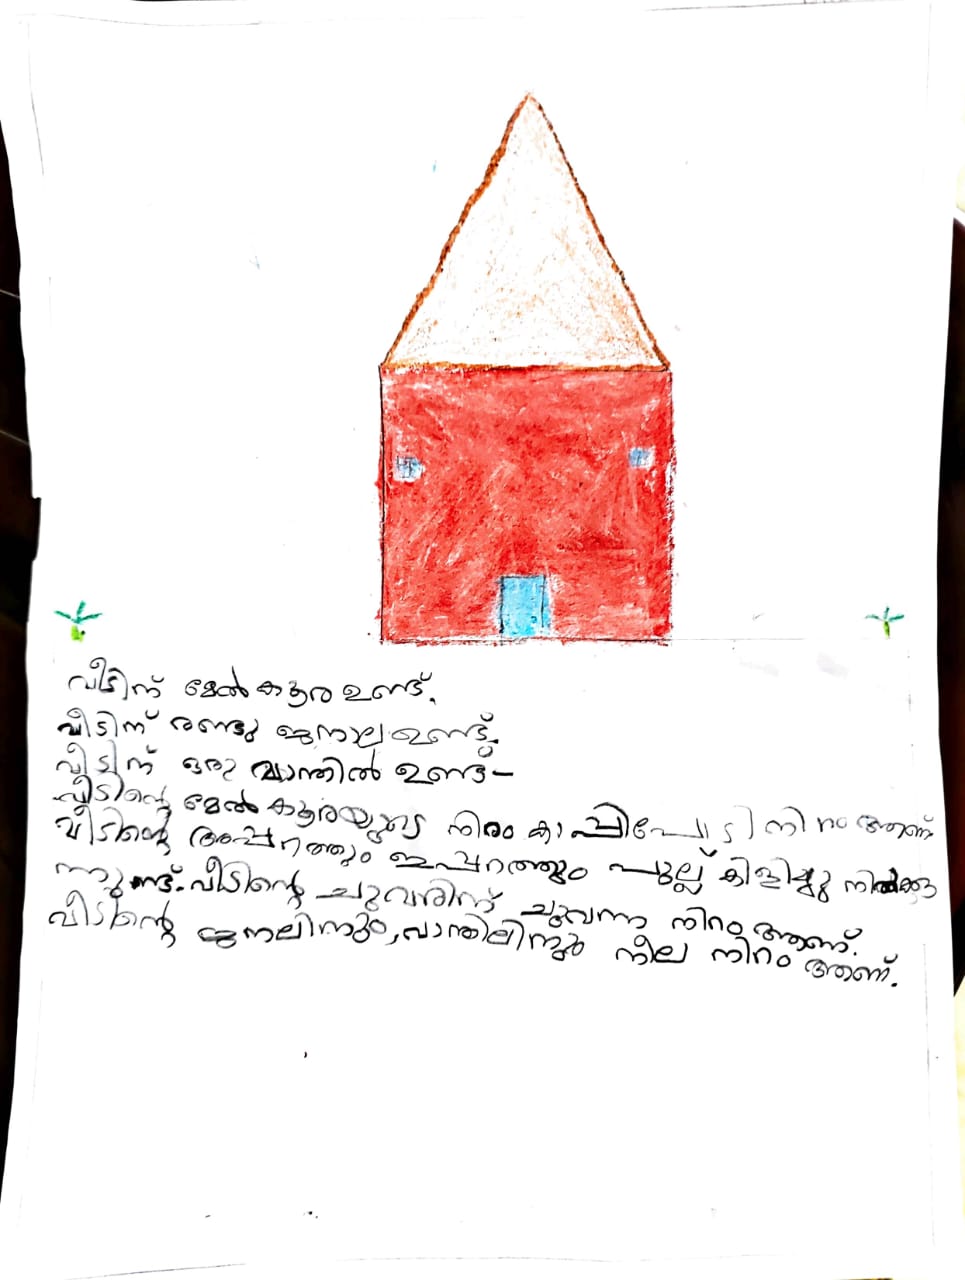 വീടിന് മേൽകൂര ഉണ്ട്.
വീടിന് രണ്ടു ജനാല ഉണ്ട്.
വീടിന് ഒരു വാതിൽ ഉണ്ട്-
വീടിന്റെ മേൽകൂരയുടെ നിരം കാപ്പിപോടി നിറം ആണ്
വീടിന്റെ അപ്പറത്തും ഇപ്പറത്തും പുല്ല് കിളിച്ചു നിൽക്കു
ന്നുണ്ട്. വീടിന്റെ ചുവരിന് ചുവന്ന നിറം ആണ്.
വീടിന്റെ ജനലിന്നും, വാതിലിന്നും നീല നിറം ആണ്.